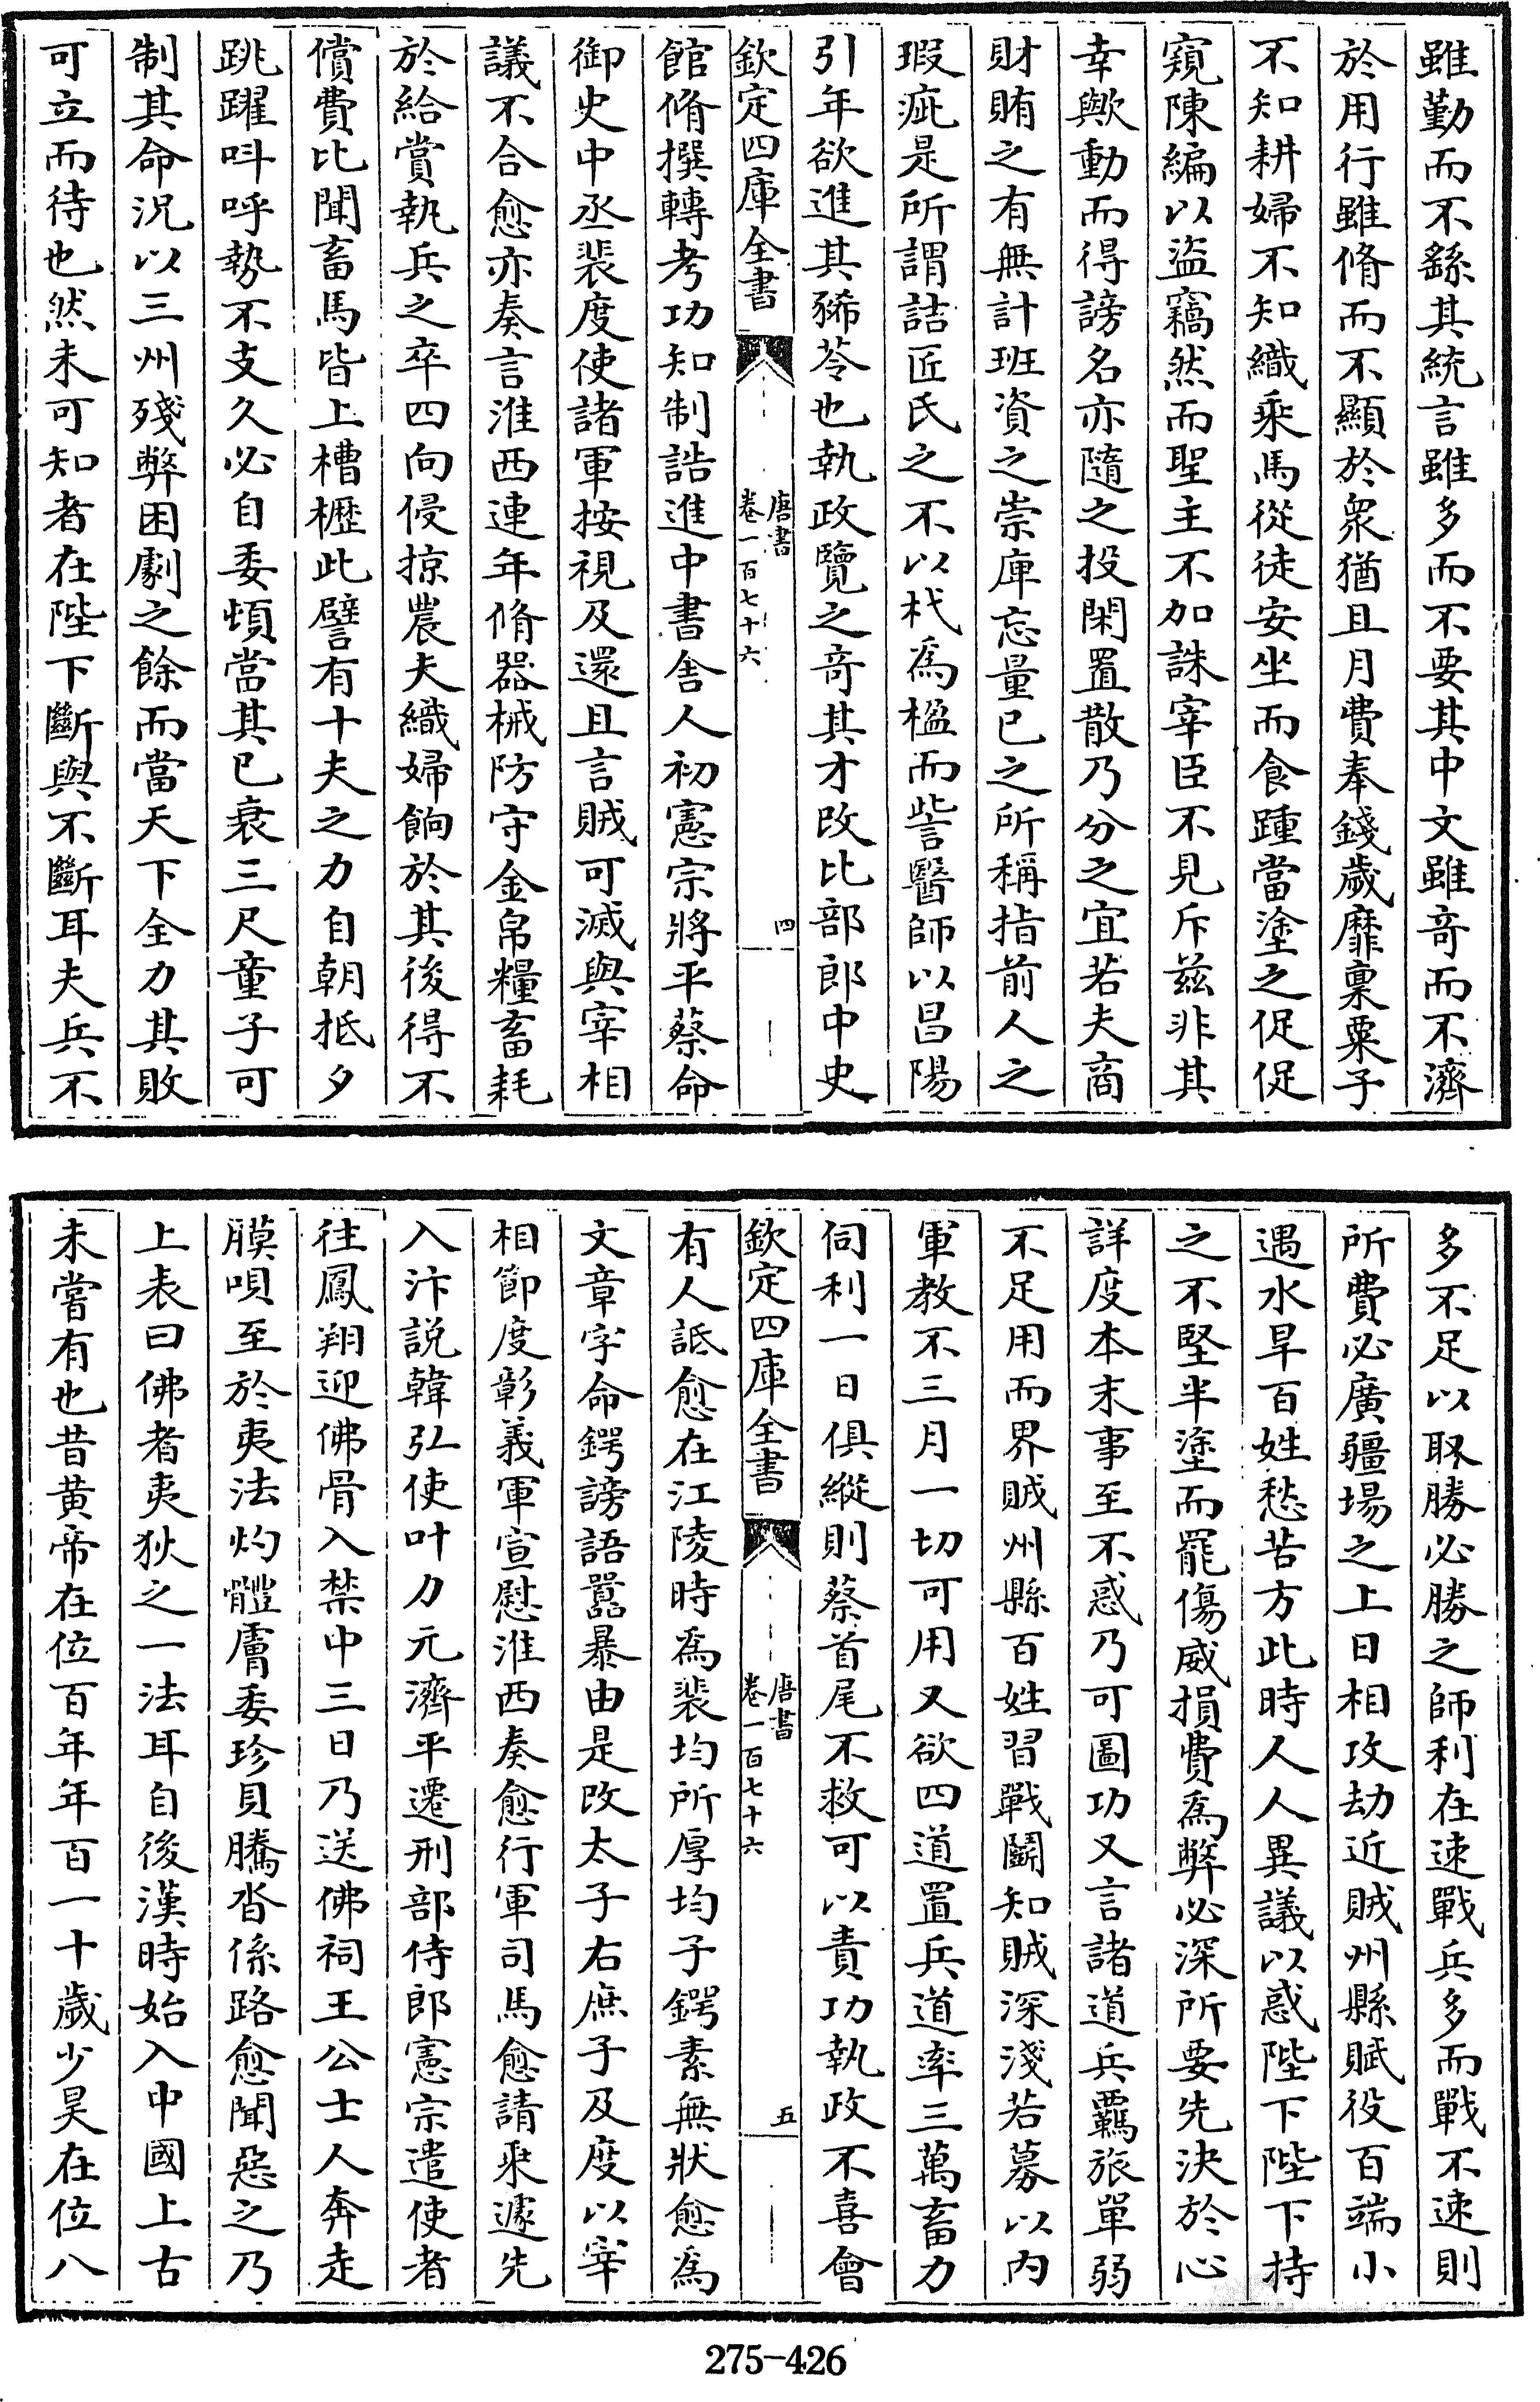 雖勤而不繇其統言雖多而不要其中文雖奇而不濟
於用行雖脩而不顯於衆猶且月費奉錢歲靡稟粟子
不知耕婦不知織乘馬從徒安坐而食踵當塗之促促
窺陳編以盜竊然而聖主不加誅宰臣不見斥兹非其
幸歟動而得謗名亦隨之投閑置散乃分之宜若夫商
財賄之有無計班資之崇庳忘量已之所稱指前人之
瑕疵是所謂詰匠氏之不以杙為楹而訾醫師以昌陽
引年欲進其豨苓也執政覽之奇其才改比部郎中史
欽定四庫全書
唐書
卷一百七十六
四
館脩撰轉考功知制誥進中書舍人初憲宗將平蔡命
御史中丞裴度使諸軍按視及還且言賊可滅與宰相
議不合愈亦奏言淮西連年脩器械防守金帛糧畜耗
於給賞執兵之卒四向侵掠農夫織婦餉於其後得不
償費比聞畜馬皆上槽櫪此譬有十夫之力自朝抵夕
跳躍呌呼勢不支久必自委頓當其已衰三尺童子可
制其命況以三州殘弊困劇之餘而當天下全力其敗
可立而待也然未可知者在陛下斷與不斷耳夫兵不
多不足以取勝必勝之師利在速戰兵多而戰不速則
所費必廣疆場之上日相攻劫近賊州縣賦役百端小
遇水旱百姓愁苦方此時人人異議以惑陛下陛下持
之不堅半塗而罷傷威損費為弊必深所要先決於心
詳度本末事至不惑乃可圖功又言諸道兵羈旅單弱
不足用而界賊州縣百姓習戰鬬知賊深淺若募以内
軍教不三月一切可用又欲四道置兵道率三萬畜力
伺利一日俱縱則蔡首尾不救可以責功執政不喜會
欽定四庫全書
唐書
卷一百七十六
五
有人詆愈在江陵時為裴均所厚均子鍔素無狀愈為
文章字命鍔謗語囂暴由是改太子右庶子及度以宰
相節度彰義軍宣慰淮西奏愈行軍司馬愈請乘遽先
入汴說韓弘使叶力元濟平遷刑部侍郎憲宗遣使者
往鳳翔迎佛骨入禁中三日乃送佛祠王公士人奔走
膜唄至於夷法灼體膚委珍貝騰沓係路愈聞惡之乃
上表曰佛者夷狄之一法耳自後漢時始入中國上古
未嘗有也昔黄帝在位百年年百一十歲少昊在位八
275-426